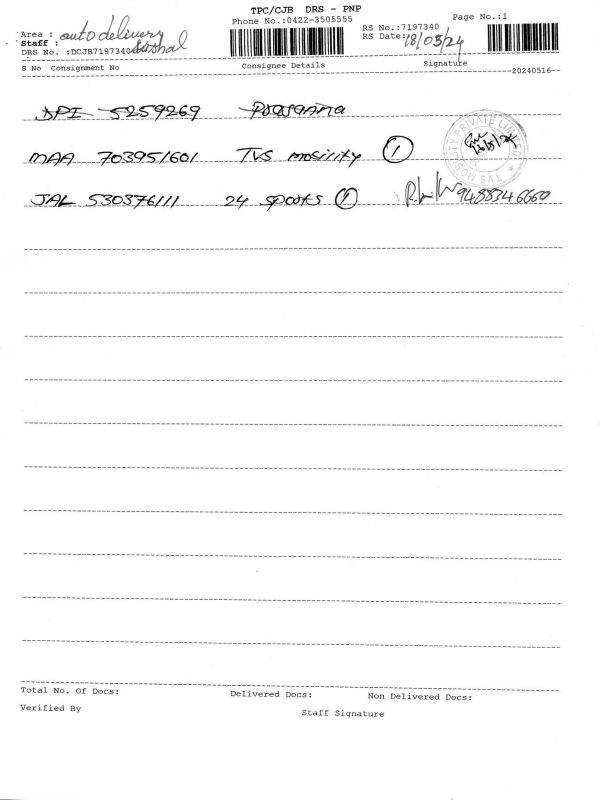 TPC/CJB DRS - PNP
Phone No.:0422-3505555
Page No.:1
Area : auto delivery
RS No.:7197340
Staff :
RS Date: 18/05/24
DRS No. :DCJB7197340
S No Consignment No Consignee Details Signature
--20240516--
DPI 5259269
MAA 703951601 TVS mobility 1
TVS MOBILITY PRIVATE LIMITED
JAL 530376111 24 sports 1 9488346660
Total No. Of Docs: Delivered Docs: Non Delivered Docs:
Verified By Staff Signature